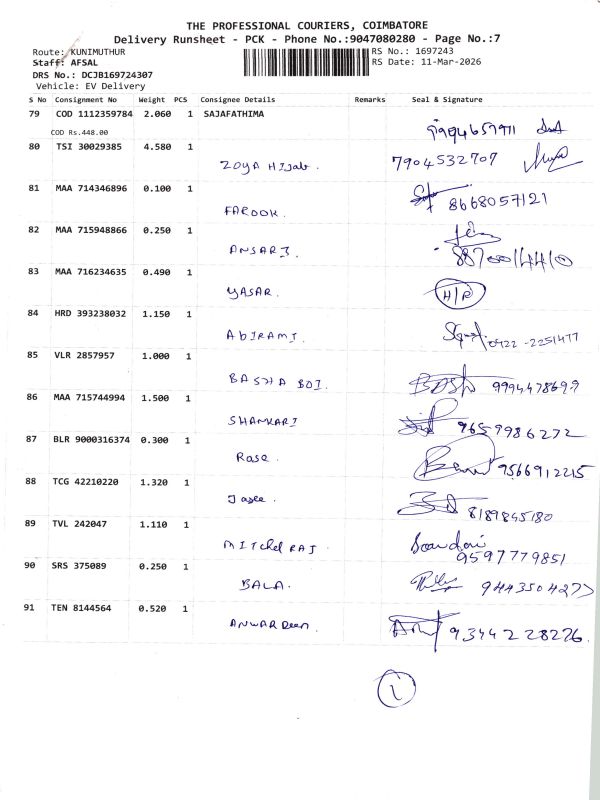 THE PROFESSIONAL COURIERS, COIMBATORE
Delivery Runsheet - PCK - Phone No.:9047080280 - Page No.:7
Route: KUNIMUTHUR
RS No.: 1697243
Staff: AFSAL
RS Date: 11-Mar-2026
DRS No.: DCJB169724307
Vehicle: EV Delivery
S No Consignment No Weight PCS Consignee Details Remarks Seal & Signature
79 COD 1112359784 2.060 1 SAJAFATHIMA
COD Rs.448.00
9994657911
80 TSI 30029385 4.580 1
ZOYA HIJab. 7904532707
81 MAA 714346896 0.100 1
FAROOK. 8668057121
82 MAA 715948866 0.250 1
ANSARI.
83 MAA 716234635 0.490 1
YASAR. H/P
84 HRD 393238032 1.150 1
AbIRAMI. 0422-2251477
85 VLR 2857957 1.000 1
BASHA BOI. 9994478699
86 MAA 715744994 1.500 1
SHANKARI 9659986272
87 BLR 9000316374 0.300 1
Rose. 9566912215
88 TCG 42210220 1.320 1
8189845180
89 TVL 242047 1.110 1
MITChel RAJ 9597779851
90 SRS 375089 0.250 1
BALA. 9443504277
91 TEN 8144564 0.520 1
ANWARDeen. 9344228226.
1